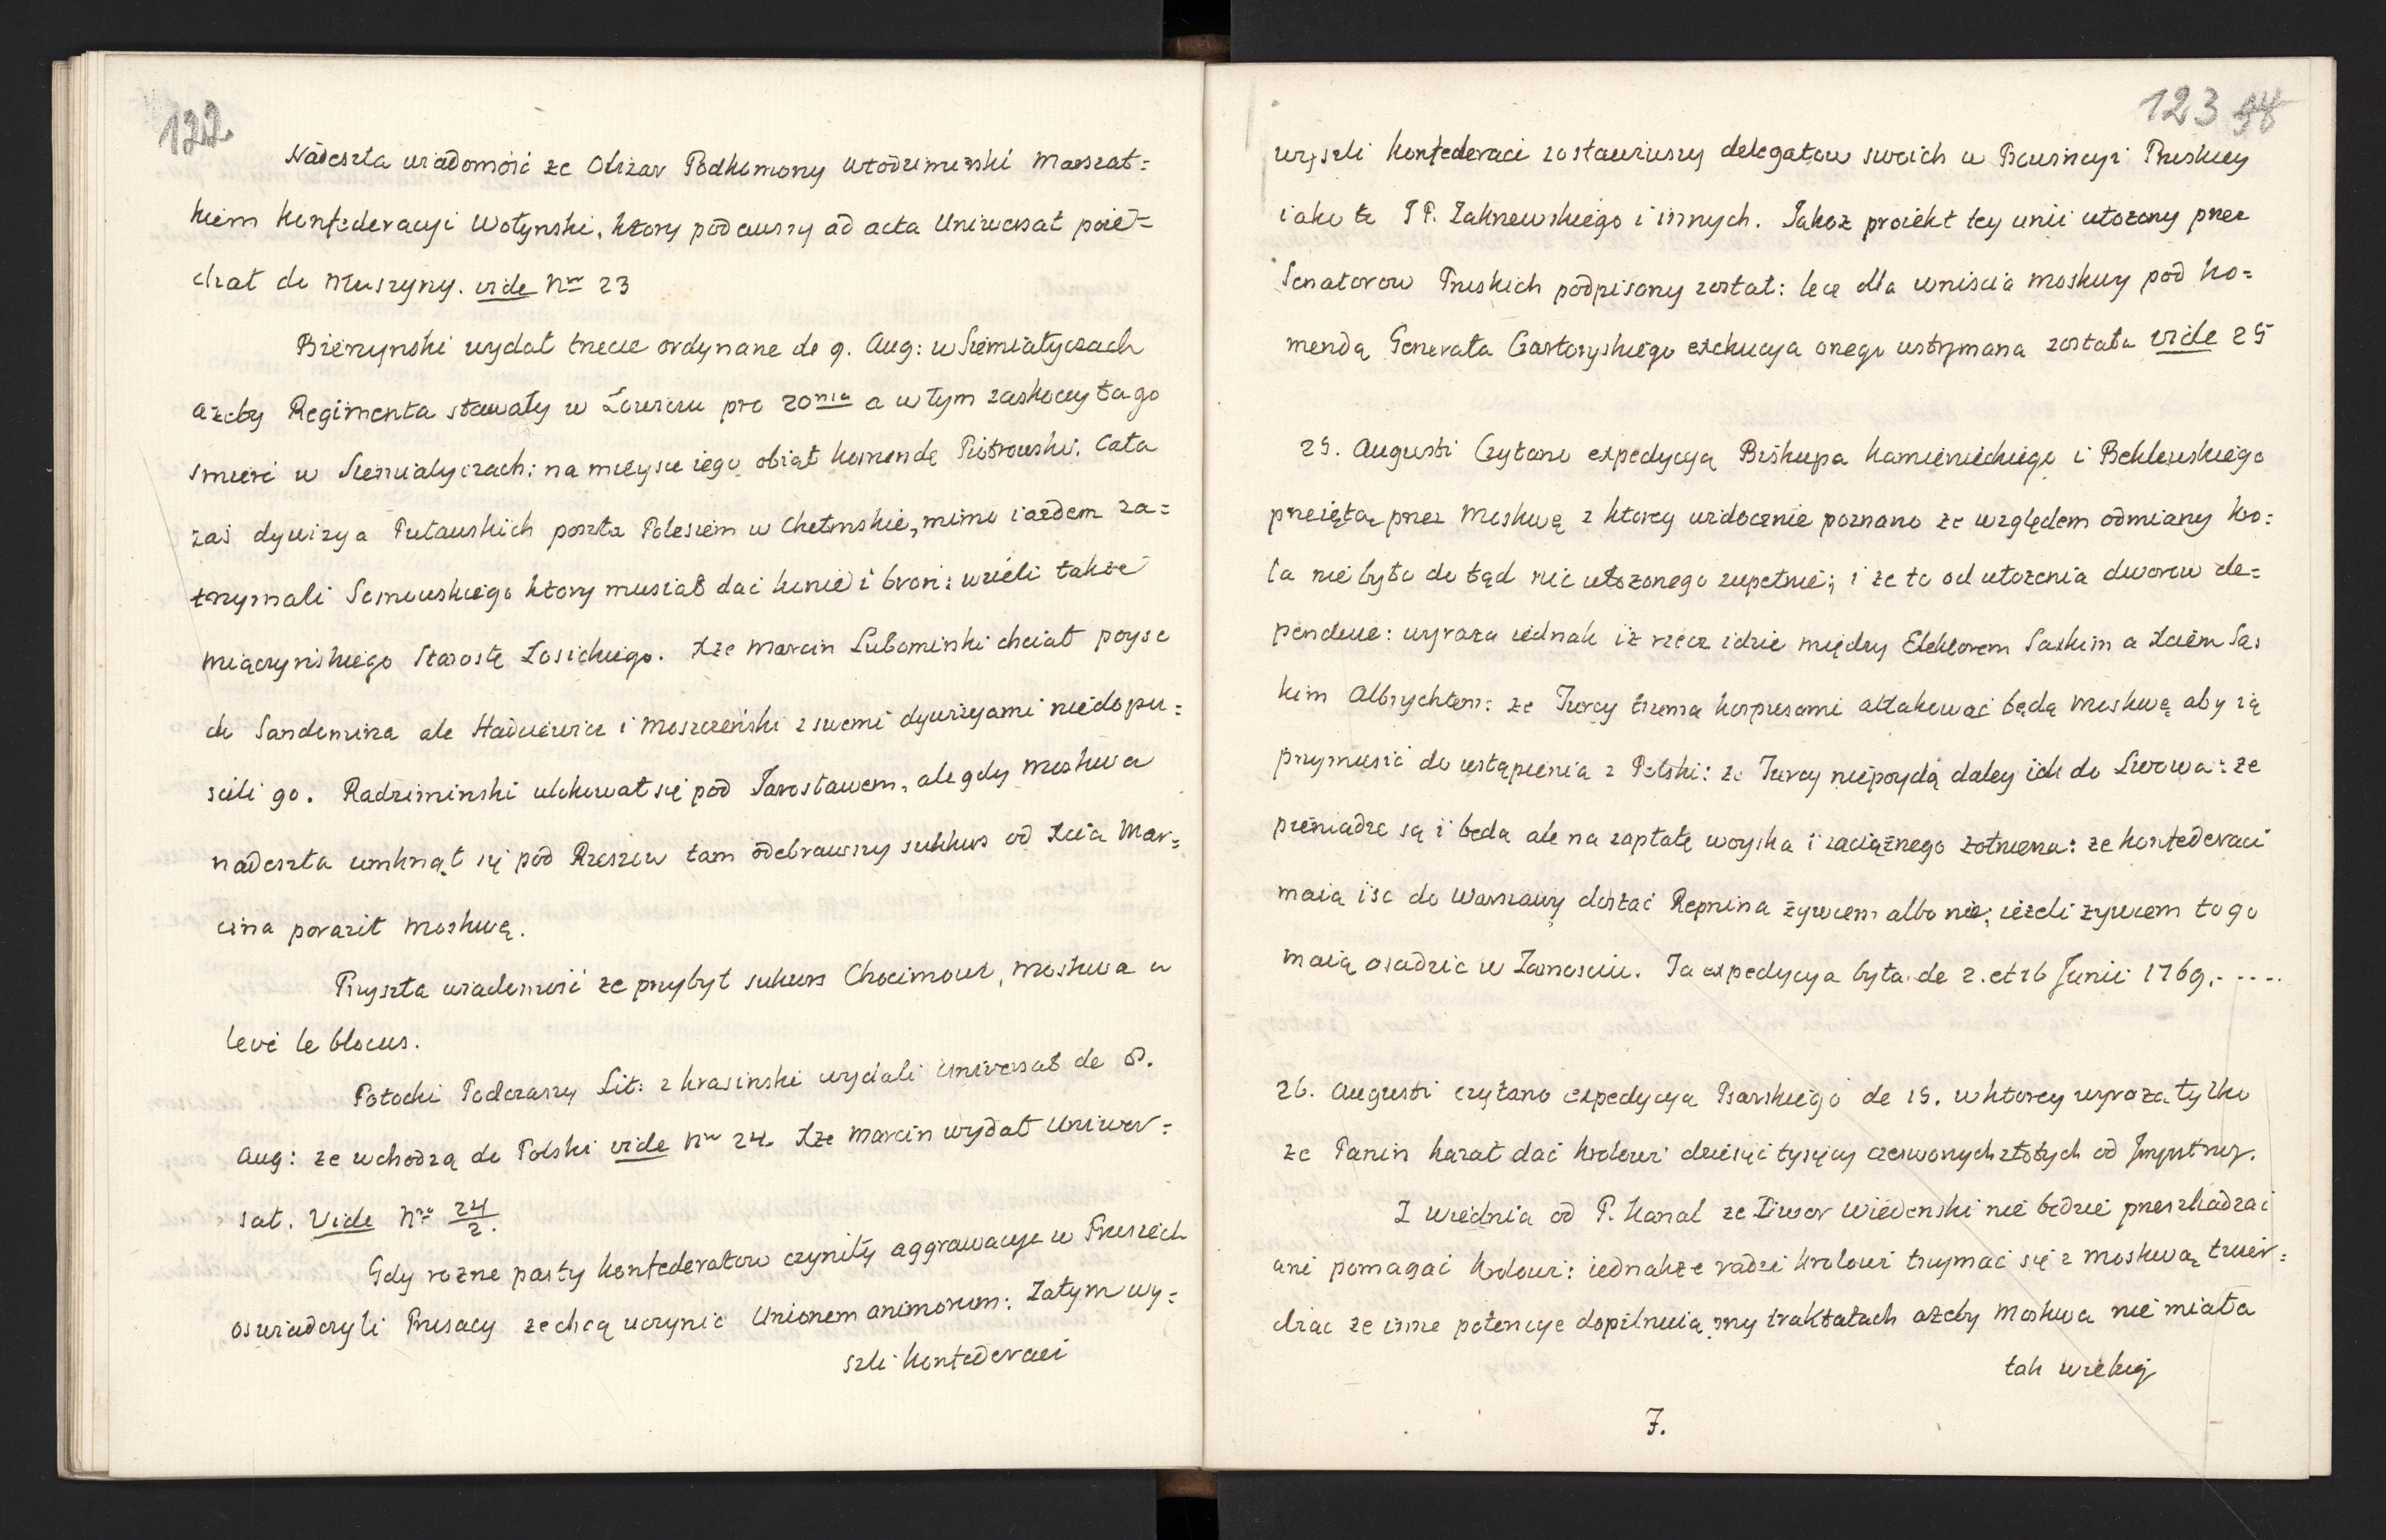 122
Nadeszła wiadomość że Olizar Podkomorzy Włodzimirski Marszał=
kiem konfederacyi Wołynski, ktory podawszy ad acta Uniwersał poie=
chał do Muszyny. vide Nro 23
Bierzynski wydał trzecie ordynanse de 9. Aug: w Siemiatyczach
azeby Regimenta stawały w Łowiczu pro 20ma a w tym zaskoczyła go
smierć w Siemiatyczach: na mieysce iego obiął komendę Piotrowski. Cała
zaś dywizya Puławskich poszła Polesiem w Chełmskie, mimo iazdem za=
trzymali Sosnowskiego ktory musiał dać konie i broń: wzieli także
Miączynskiego Starostę Łosickiego. Xże Marcin Lubomirski chciał poysc
do Sandomirza ale Hadziewicz i Moszczeński z swemi dywizyami niedopu=
scili go. Radziminski ulokował się pod Jarosławem, ale gdy Moskwa
nadeszła umknął się pod Rzeszow tam odebrawszy sukkurs od Xcia Mar=
cina poraził Moskwę.
Przyszła wiadomość że przybył sukurs Chocimowi, Moskwa a
levé le blocus.
Potocki Podczaszy Lit: z Krasinski wydali Uniwersał de 8.
Aug: że wchodzą do Polski vide Nro 24. Xże Marcin wydał Uniwer=
sał. Vide Nro 24/2.
Gdy rożne party konfederatow czyniły aggrawacye w Prusiech
oswiadczyli Prusacy ze chcą uczynić Unionem animorum: Zatym wy=
szli konfederaci
123 94
wyszli konfederaci zostawiwszy delegatow swoich w Prowincyi Pruskiey
iako to JP. Zakrzewskiego i innych. Jakoż proiekt tey unii ułożony przez
Senatorow Pruskich podpisany został: lecz dla wniscia Moskwy pod ko=
mendą Generała Czartoryskiego exekucya onego wstrzymana została vide 25
25. Augusti Czytano expedycyą Biskupa Kamienieckiego i Beklewskiego
przeiętą przez Moskwę z ktorey widocznie poznano że względem odmiany kro=
la nie było do tąd nic ułożonego zupełnie; i że to od ułożenia dworow de=
penduie: wyraża iednak iż rzecz idzie między Elektorem Saskim a Xciem Sas
kim Albrychtem: że Turcy trzema korpusami attakować będą Moskwę aby ią
przymusić do ustąpienia z Polski: że Turcy niepoydą daley iak do Lwowa: że
pieniadze są i będą ale na zapłatę woyska i zaciążnego żołnierza: że konfederaci
maią isc do Warszawy dostać Repnina żywcem albo nie; ieżeli żywcem to go
maią osadzic w Zamosciu. Ta expedycya była de 2. et 16 Junii 1769. - - - -
26. Augusti czytano expedycya Psarskiego de 15. w ktorey wyraża tylko
że Panin kazał dać krolowi dziesięć tysięcy czerwonych złotych od Imperatrwy.
Z Wiednia od P. Kanal że Dwor Wiedenski nie będzie przeszkadzać
ani pomagać krolowi: iednakże radzi krolowi trzymać się z Moskwą twier=
dząc że inne potencye dopilnuią przy traktatach ażeby Moskwa nie miała
tak wielkiey
7.